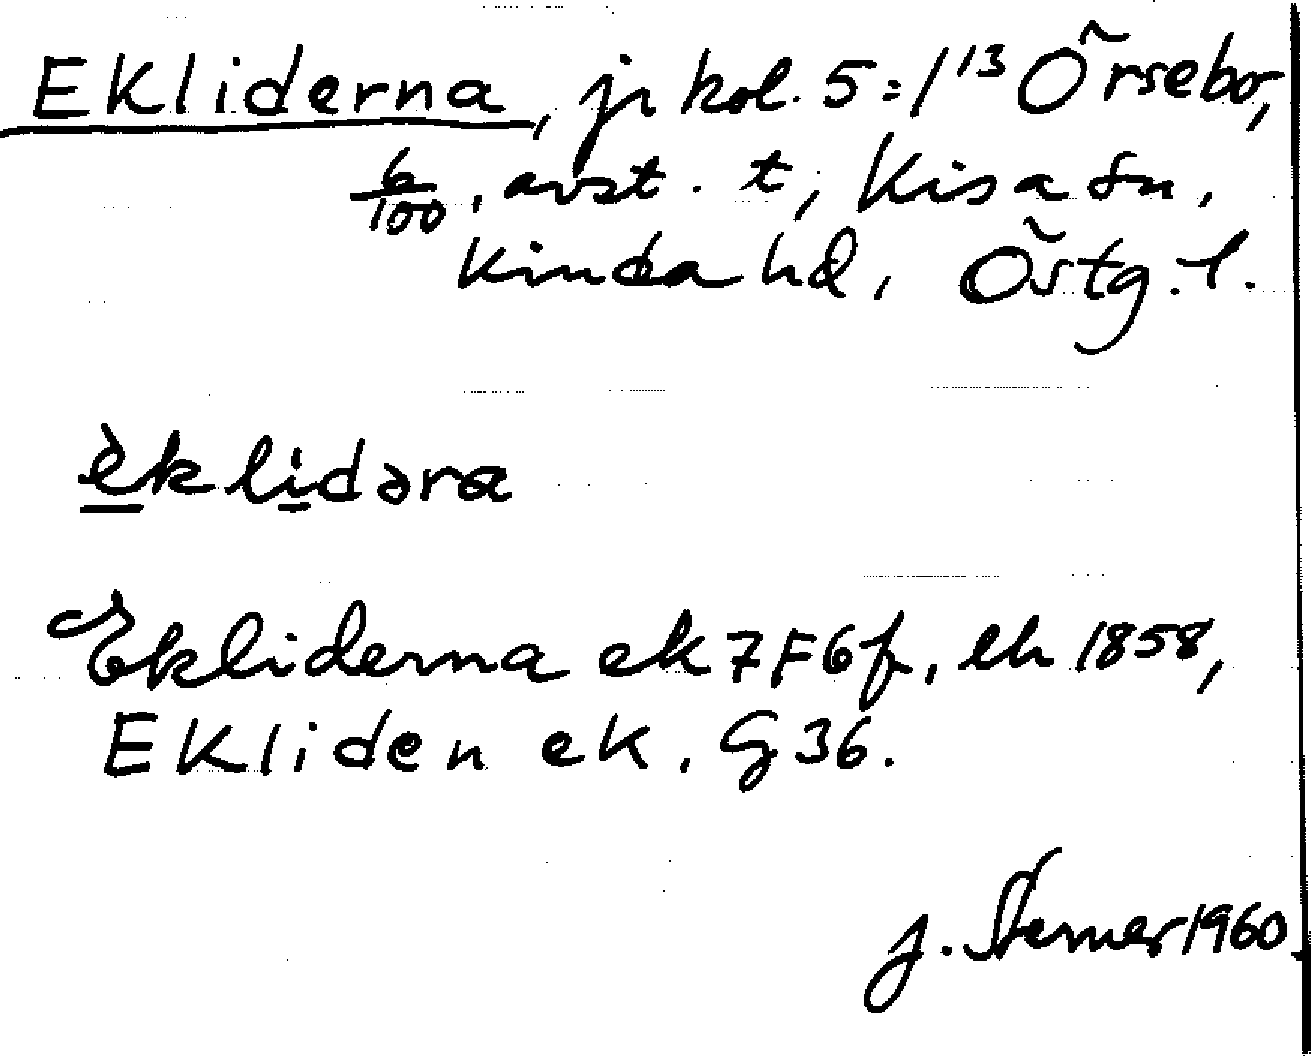 Ekliderna, jr kol. 5:/13 Örsebo,
6/100, avst. t, Kisa sn,
Kinda hd, Östg. l.
èklidəra
Ekliderna ek 7F6f, eh 1858,
Ekliden ek. G 36.
J. Sterner 1960.